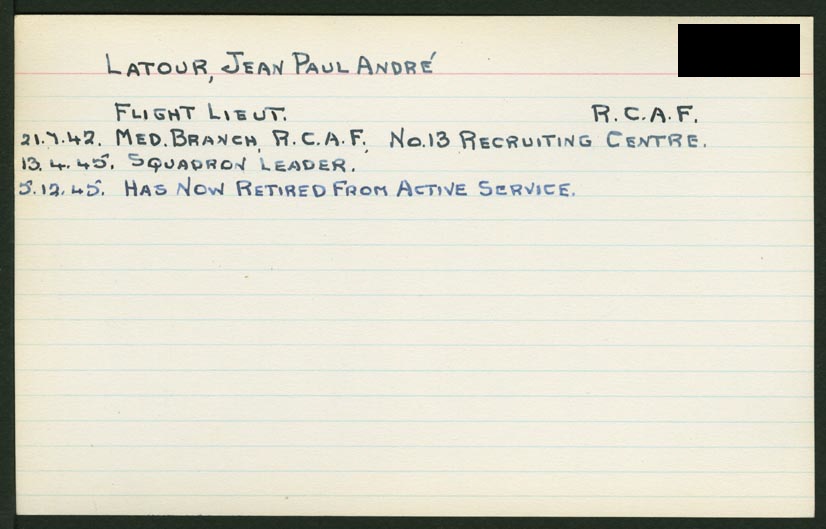 LATOUR, JEAN PAUL ANDRÉ
FLIGHT LIEUT. R.C.A.F.
21.7.42. MED. BRANCH, R.C.A.F., No. 13 RECRUITING CENTRE.
13.4.45. SQUADRON LEADER.
5.12.45. HAS NOW RETIRED FROM ACTIVE SERVICE.